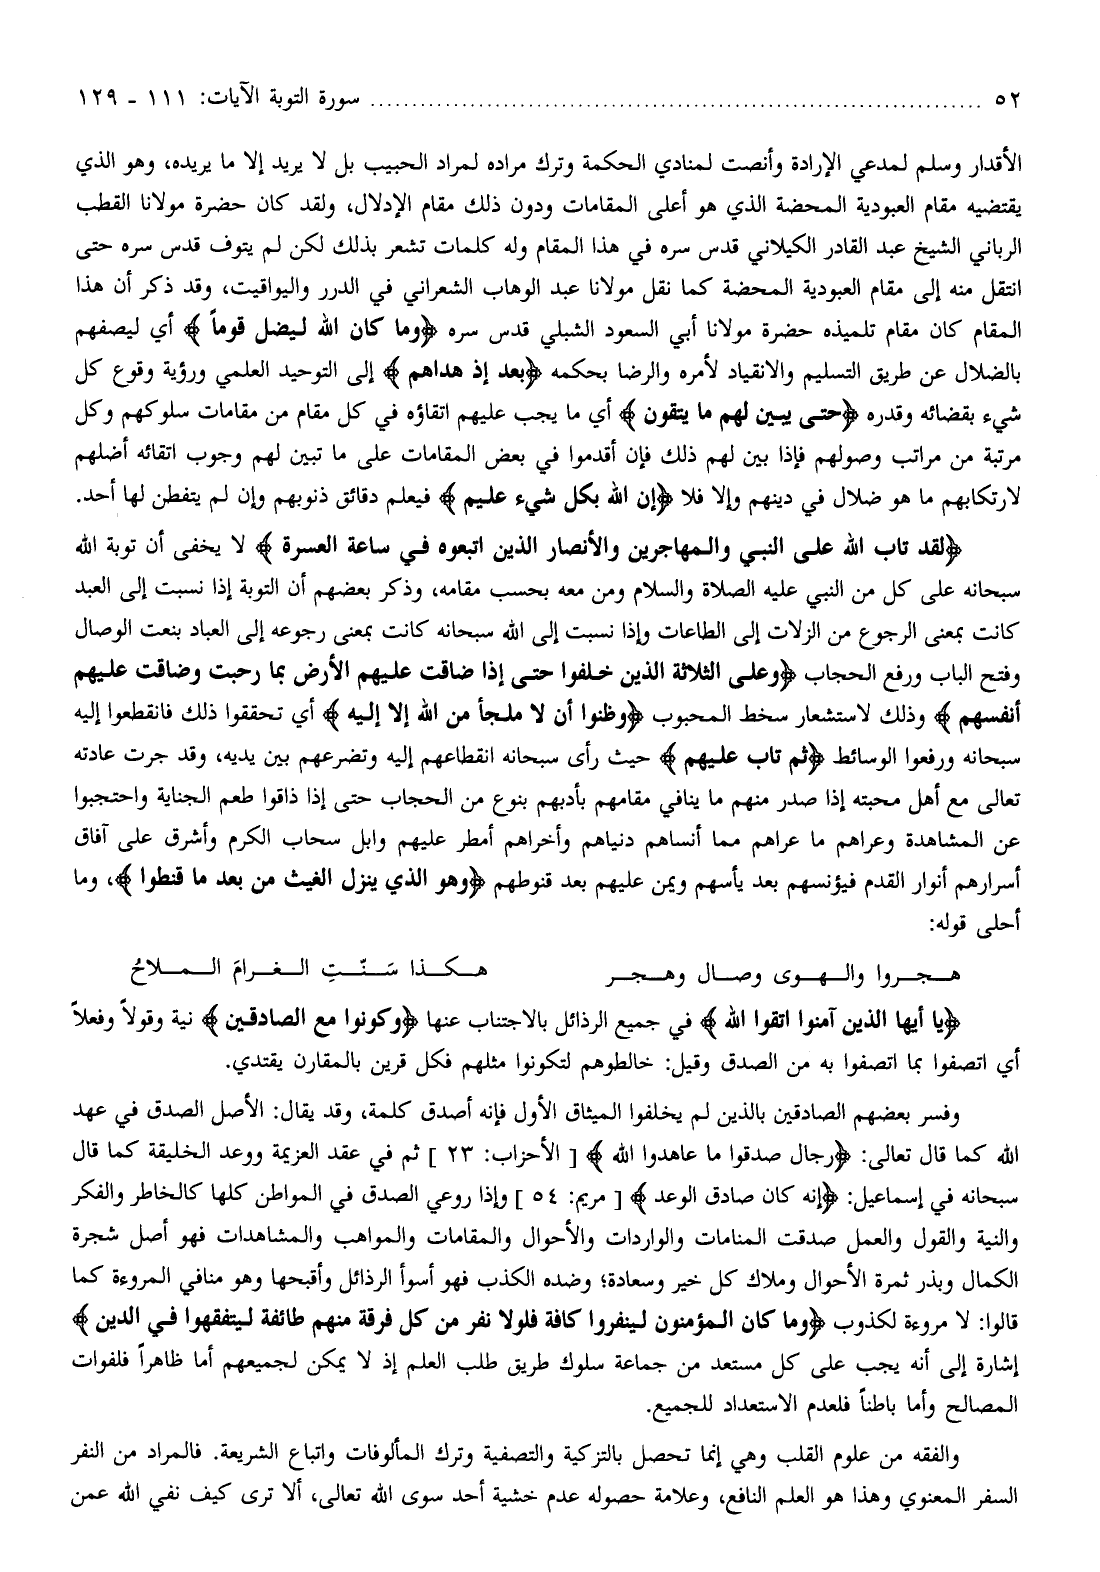 ٥٢ .......................................................................... سورة التوبة الآيات: ١١١ - ١٢٩
الأقدار وسلم لمدعي الإرادة وأنصت لمنادي الحكمة وترك مراده لمراد الحبيب بل لا يريد إلا ما يريده، وهو الذي
يقتضيه مقام العبودية المحضة الذي هو أعلى المقامات ودون ذلك مقام الإدلال، ولقد كان حضرة مولانا القطب
الرباني الشيخ عبد القادر الكيلاني قدس سره في هذا المقام وله كلمات تشعر بذلك لكن لم يتوف قدس سره حتى
انتقل منه إلى مقام العبودية المحضة كما نقل مولانا عبد الوهاب الشعراني في الدرر واليواقيت، وقد ذكر أن هذا
المقام كان مقام تلميذه حضرة مولانا أبي السعود الشبلي قدس سره ﴿وما كان الله ليضل قوماً﴾ أي ليصفهم
بالضلال عن طريق التسليم والانقياد لأمره والرضا بحكمه ﴿بعد إذ هداهم﴾ إلى التوحيد العلمي ورؤية وقوع كل
شيء بقضائه وقدره ﴿حتى يبين لهم ما يتقون﴾ أي ما يجب عليهم اتقاؤه في كل مقام من مقامات سلوكهم وكل
مرتبة من مراتب وصولهم فإذا بين لهم ذلك فإن أقدموا في بعض المقامات على ما تبين لهم وجوب اتقائه أضلهم
لارتكابهم ما هو ضلال في دينهم وإلا فلا ﴿إن الله بكل شيء عليم﴾ فيعلم دقائق ذنوبهم وإن لم يتفطن لها أحد.
﴿لقد تاب الله على النبي والمهاجرين والأنصار الذين اتبعوه في ساعة العسرة﴾ لا يخفى أن توبة الله
سبحانه على كل من النبي عليه الصلاة والسلام ومن معه بحسب مقامه، وذكر بعضهم أن التوبة إذا نسبت إلى العبد
كانت بمعنى الرجوع من الزلات إلى الطاعات وإذا نسبت إلى الله سبحانه كانت بمعنى رجوعه إلى العباد بنعت الوصال
وفتح الباب ورفع الحجاب ﴿وعلى الثلاثة الذين خلفوا حتى إذا ضاقت عليهم الأرض بما رحبت وضاقت عليهم
أنفسهم﴾ وذلك لاستشعار سخط المحبوب ﴿وظنوا أن لا ملجأ من الله إلا إليه﴾ أي تحققوا ذلك فانقطعوا إليه
سبحانه ورفعوا الوسائط ﴿ثم تاب عليهم﴾ حيث رأى سبحانه انقطاعهم إليه وتضرعهم بين يديه، وقد جرت عادته
تعالى مع أهل محبته إذا صدر منهم ما ينافي مقامهم بأدبهم بنوع من الحجاب حتى إذا ذاقوا طعم الجناية واحتجبوا
عن المشاهدة وعراهم ما عراهم مما أنساهم دنياهم وأخراهم أمطر عليهم وابل سحاب الكرم وأشرق على آفاق
أسرارهم أنوار القدم فيؤنسهم بعد يأسهم ويمن عليهم بعد قنوطهم ﴿وهو الذي ينزل الغيث من بعد ما قنطوا﴾، وما
أحلى قوله:
هجروا والهوى وصال وهجر هكذا سَنّتِ الغرامَ الملاحُ
﴿يا أيها الذين آمنوا اتقوا الله﴾ في جميع الرذائل بالاجتناب عنها ﴿وكونوا مع الصادقين﴾ نية وقولاً وفعلاً
أي اتصفوا بما اتصفوا به من الصدق وقيل: خالطوهم لتكونوا مثلهم فكل قرين بالمقارن يقتدي.
وفسر بعضهم الصادقين بالذين لم يخلفوا الميثاق الأول فإنه أصدق كلمة، وقد يقال: الأصل الصدق في عهد
الله كما قال تعالى: ﴿رجال صدقوا ما عاهدوا الله﴾ [ الأحزاب: ٢٣ ] ثم في عقد العزيمة ووعد الخليقة كما قال
سبحانه في إسماعيل: ﴿إنه كان صادق الوعد﴾ [ مريم: ٥٤ ] وإذا روعي الصدق في المواطن كلها كالخاطر والفكر
والنية والقول والعمل صدقت المنامات والواردات والأحوال والمقامات والمواهب والمشاهدات فهو أصل شجرة
الكمال وبذر ثمرة الأحوال وملاك كل خير وسعادة؛ وضده الكذب فهو أسوأ الرذائل وأقبحها وهو منافي المروءة كما
قالوا: لا مروءة لكذوب ﴿وما كان المؤمنون لينفروا كافة فلولا نفر من كل فرقة منهم طائفة ليتفقهوا في الدين﴾
إشارة إلى أنه يجب على كل مستعد من جماعة سلوك طريق طلب العلم إذ لا يمكن لجميعهم أما ظاهراً فلفوات
المصالح وأما باطناً فلعدم الاستعداد للجميع.
والفقه من علوم القلب وهي إنما تحصل بالتزكية والتصفية وترك المألوفات واتباع الشريعة. فالمراد من النفر
السفر المعنوي وهذا هو العلم النافع، وعلامة حصوله عدم خشية أحد سوى الله تعالى، ألا ترى كيف نفي الله عمن